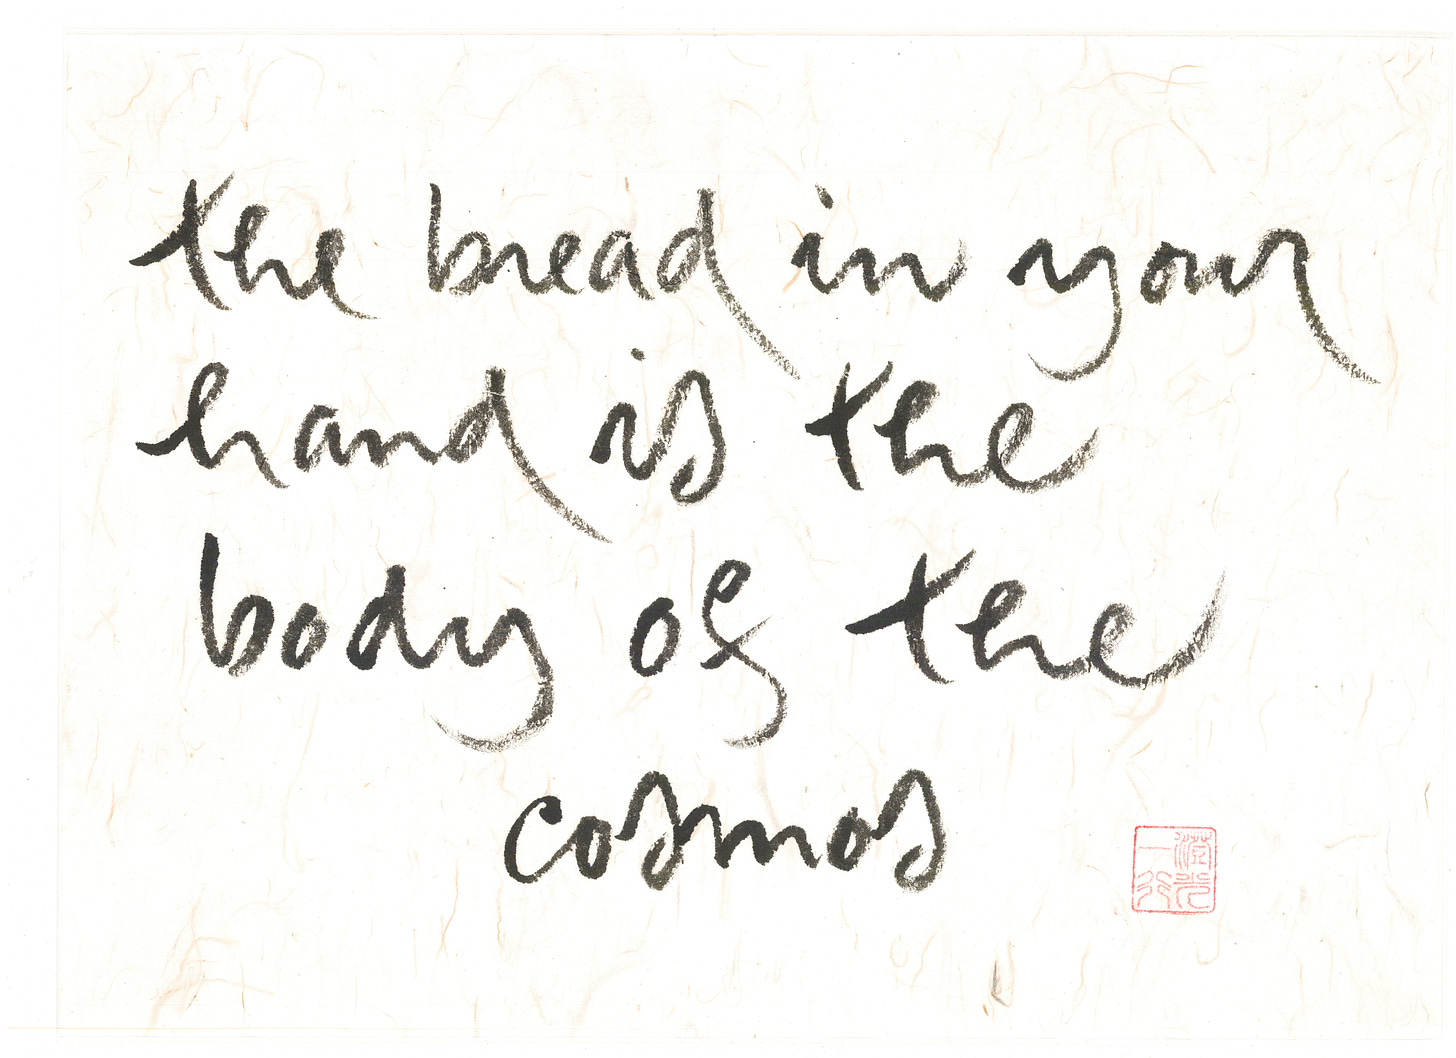 the bread in your
hand is the
body of the
cosmos